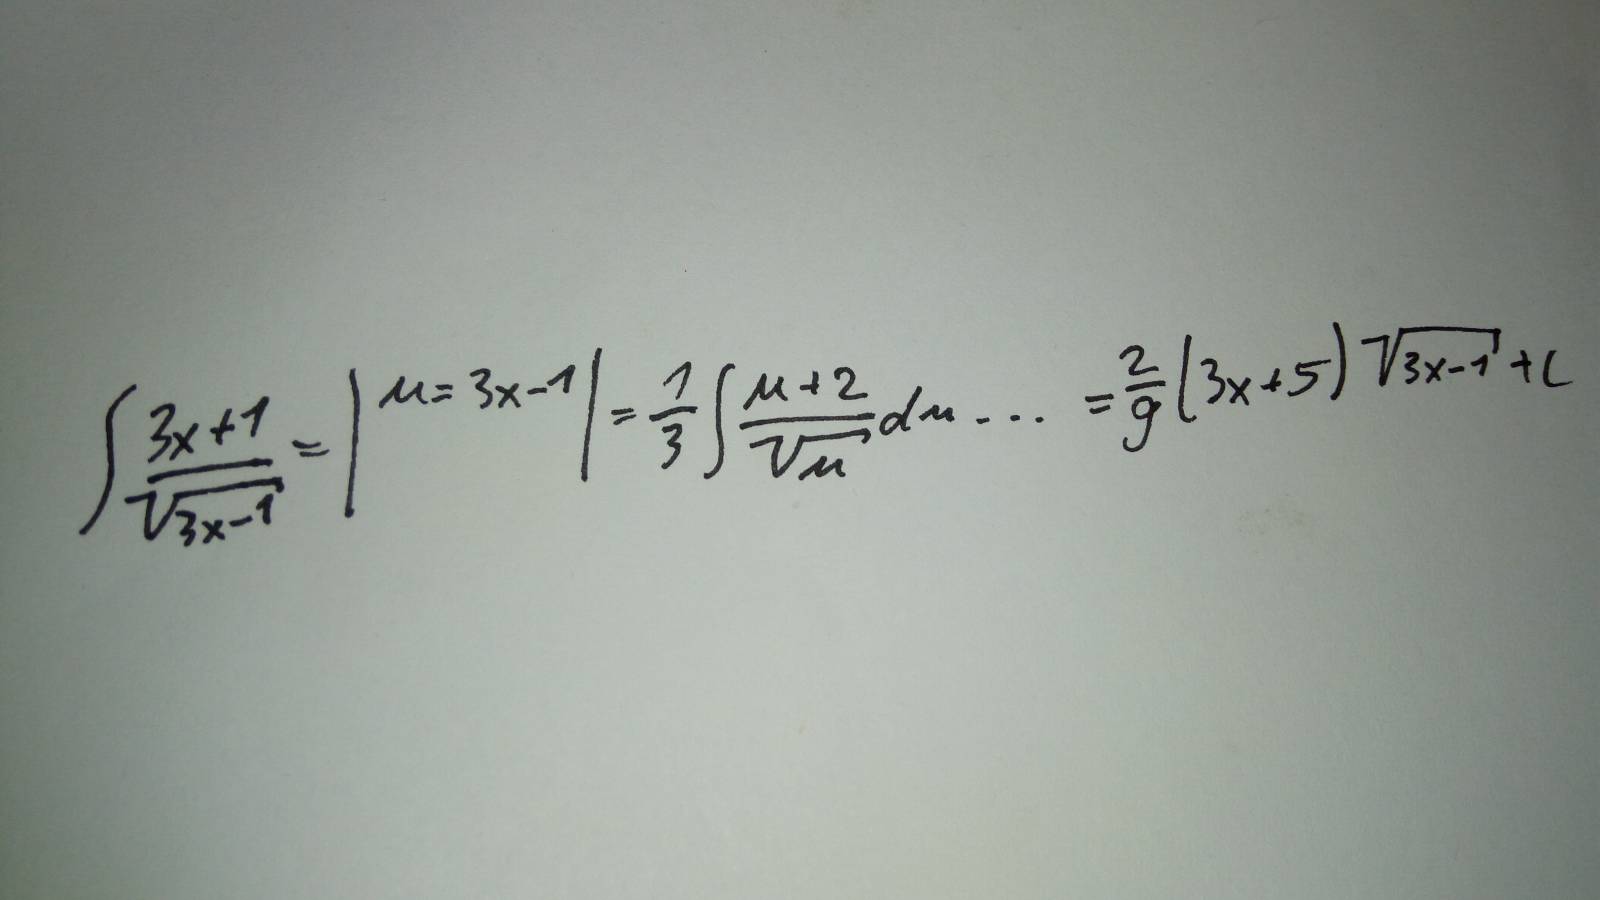 ∫ (3x+1)/√(3x-1) = | u = 3x-1 | = 1/3 ∫ (u+2)/√u du ... = 2/9 (3x+5) √(3x-1) + C